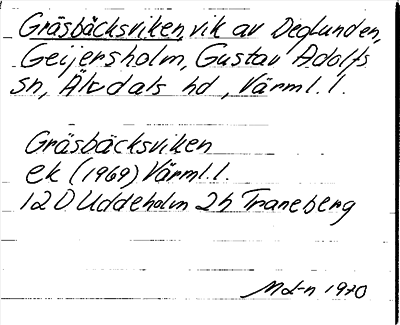 Gräsbäcksviken, vik av Deglunden,
Geijersholm, Gustav Adolfs
sn, Älvdals hd, Värml. l.
Gräsbäcksviken
ek (1969) Värml. l.
12 D Uddeholm 2h Traneberg
Mdn 1970